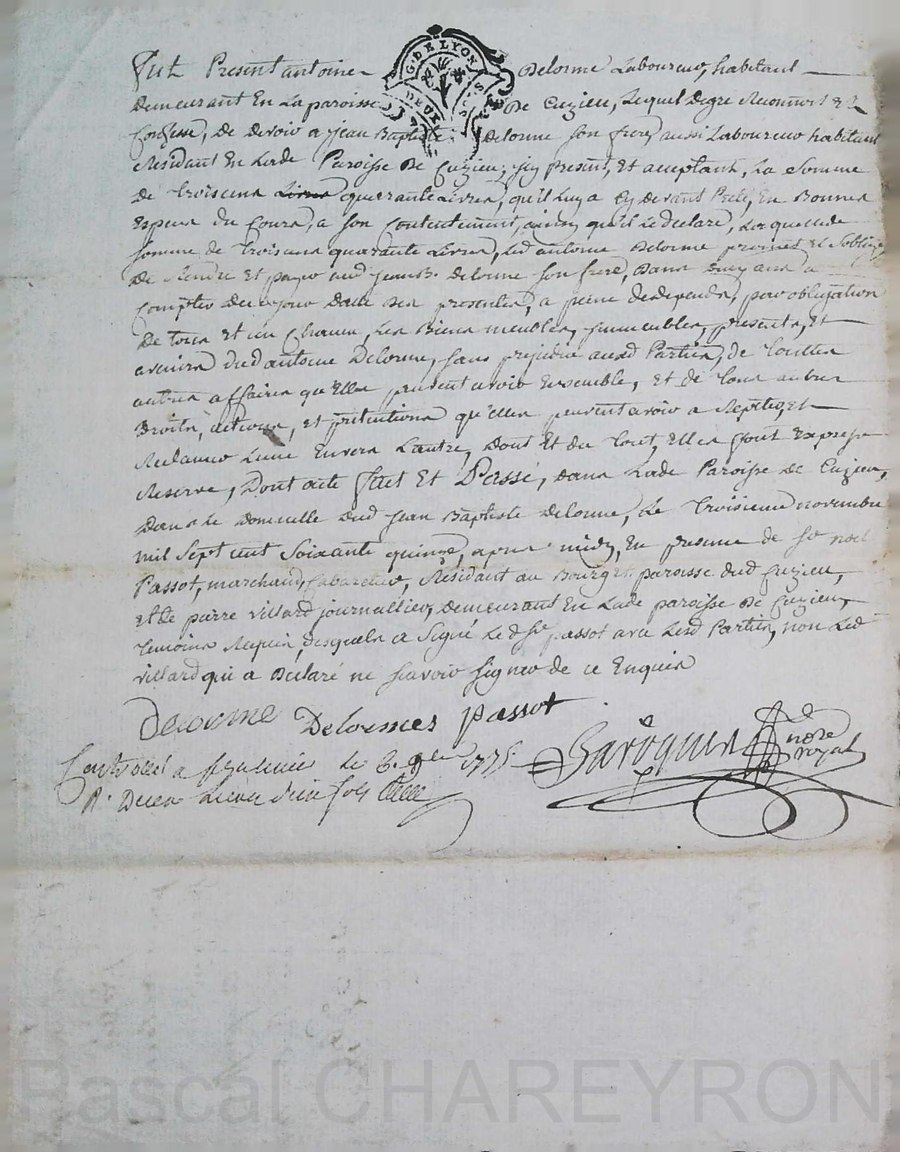 G. DE LYON
DEUX S.
fut Present antoine Delorme Laboureur, habitant
Demeurant En La paroisse De Cuzieu, Lequel degre Reconnoit &
Confesse, de devoir a jean Baptiste Delorme son frere, aussi Laboureur habitant
Residant En Lade Paroisse De Cuzieu, Icy Present, Et acceptant, La Somme
de Troiscens Livres quarante Livres, qu'il Luy a Cy devant Preté, En Bonnes
Especes du Cours, a son Contentement, ainsy qu'il Le declare, Laquelle
somme de Troiscens quarante Livres, Led antoine Delorme promet et Soblige
De Rendre Et payer aud jean B. delorme son frere, Dans ans a
Compter de ce jour date des presentes, a peine de depends, par obligation
De tous Et un Chacun, Les Biens meubles, jmmeubles, presents, Et
avenirs dud antoine Delorme, sans prejudice ausd Parties, de Touttes
autres affaires qu'Elles peuvent avoir Ensemble, Et de Tous autres
Droits, actions, et prétentions qu'elles peuvent avoir a Repeter, Et
Reclamer Lune Envers Lautre, Dont Et du Tout, Elles font Expresse
Reserve, Dont acte fait Et Passé, dans Lade Paroisse de Cuzieu,
Dans Le Domicille dud jean Baptiste delorme, Le Troisieme novembre
mil Sept cent Soixante quinze, apres midy, En presence de Sr noel
Passot, marchand, Cabaretier, Residant au Bourg et paroisse dud Cuzieu,
et de pierre villard journallier, demeurant En Lade paroisse De Cuzieu,
temoins Requis, desquels a Signé Le d Sr passot avec Lesd Parties, non Led
villard qui a Declaré ne scavoir signer de ce Enquis
Delorme Delormes passot
notre royal
Controllé a Le 6. 9bre 1775
R. Deux Livres sols
Pascal CHAREYRON